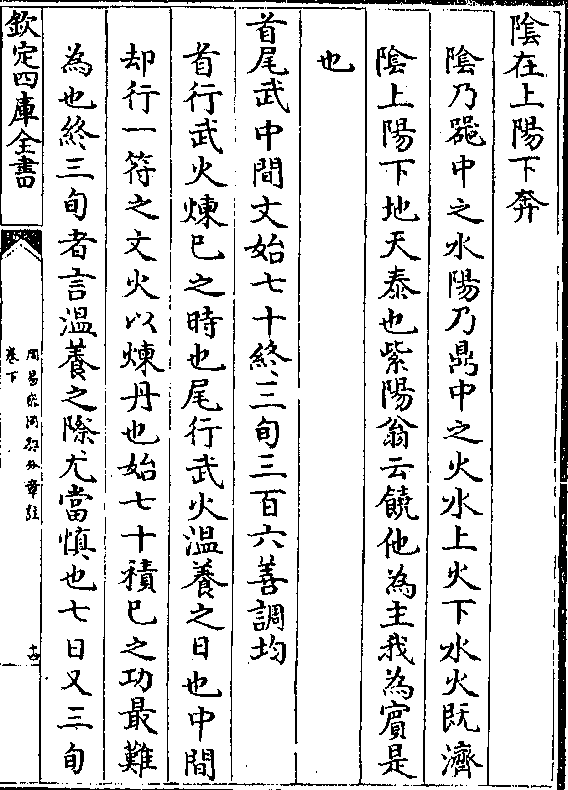 陰在上陽下奔
陰乃噐中之水陽乃鼎中之火水上火下水火既濟
陰上陽下地天泰也紫陽翁云饒他為主我為賓是
也
首尾武中間文始七十終三旬三百六善調均
首行武火煉已之時也尾行武火溫養之日也中間
却行一符之文火以煉丹也始七十積已之功最難
為也終三旬者言溫養之際尤當慎也七日又三旬
欽定四庫全書
周易參同契分章註
卷下